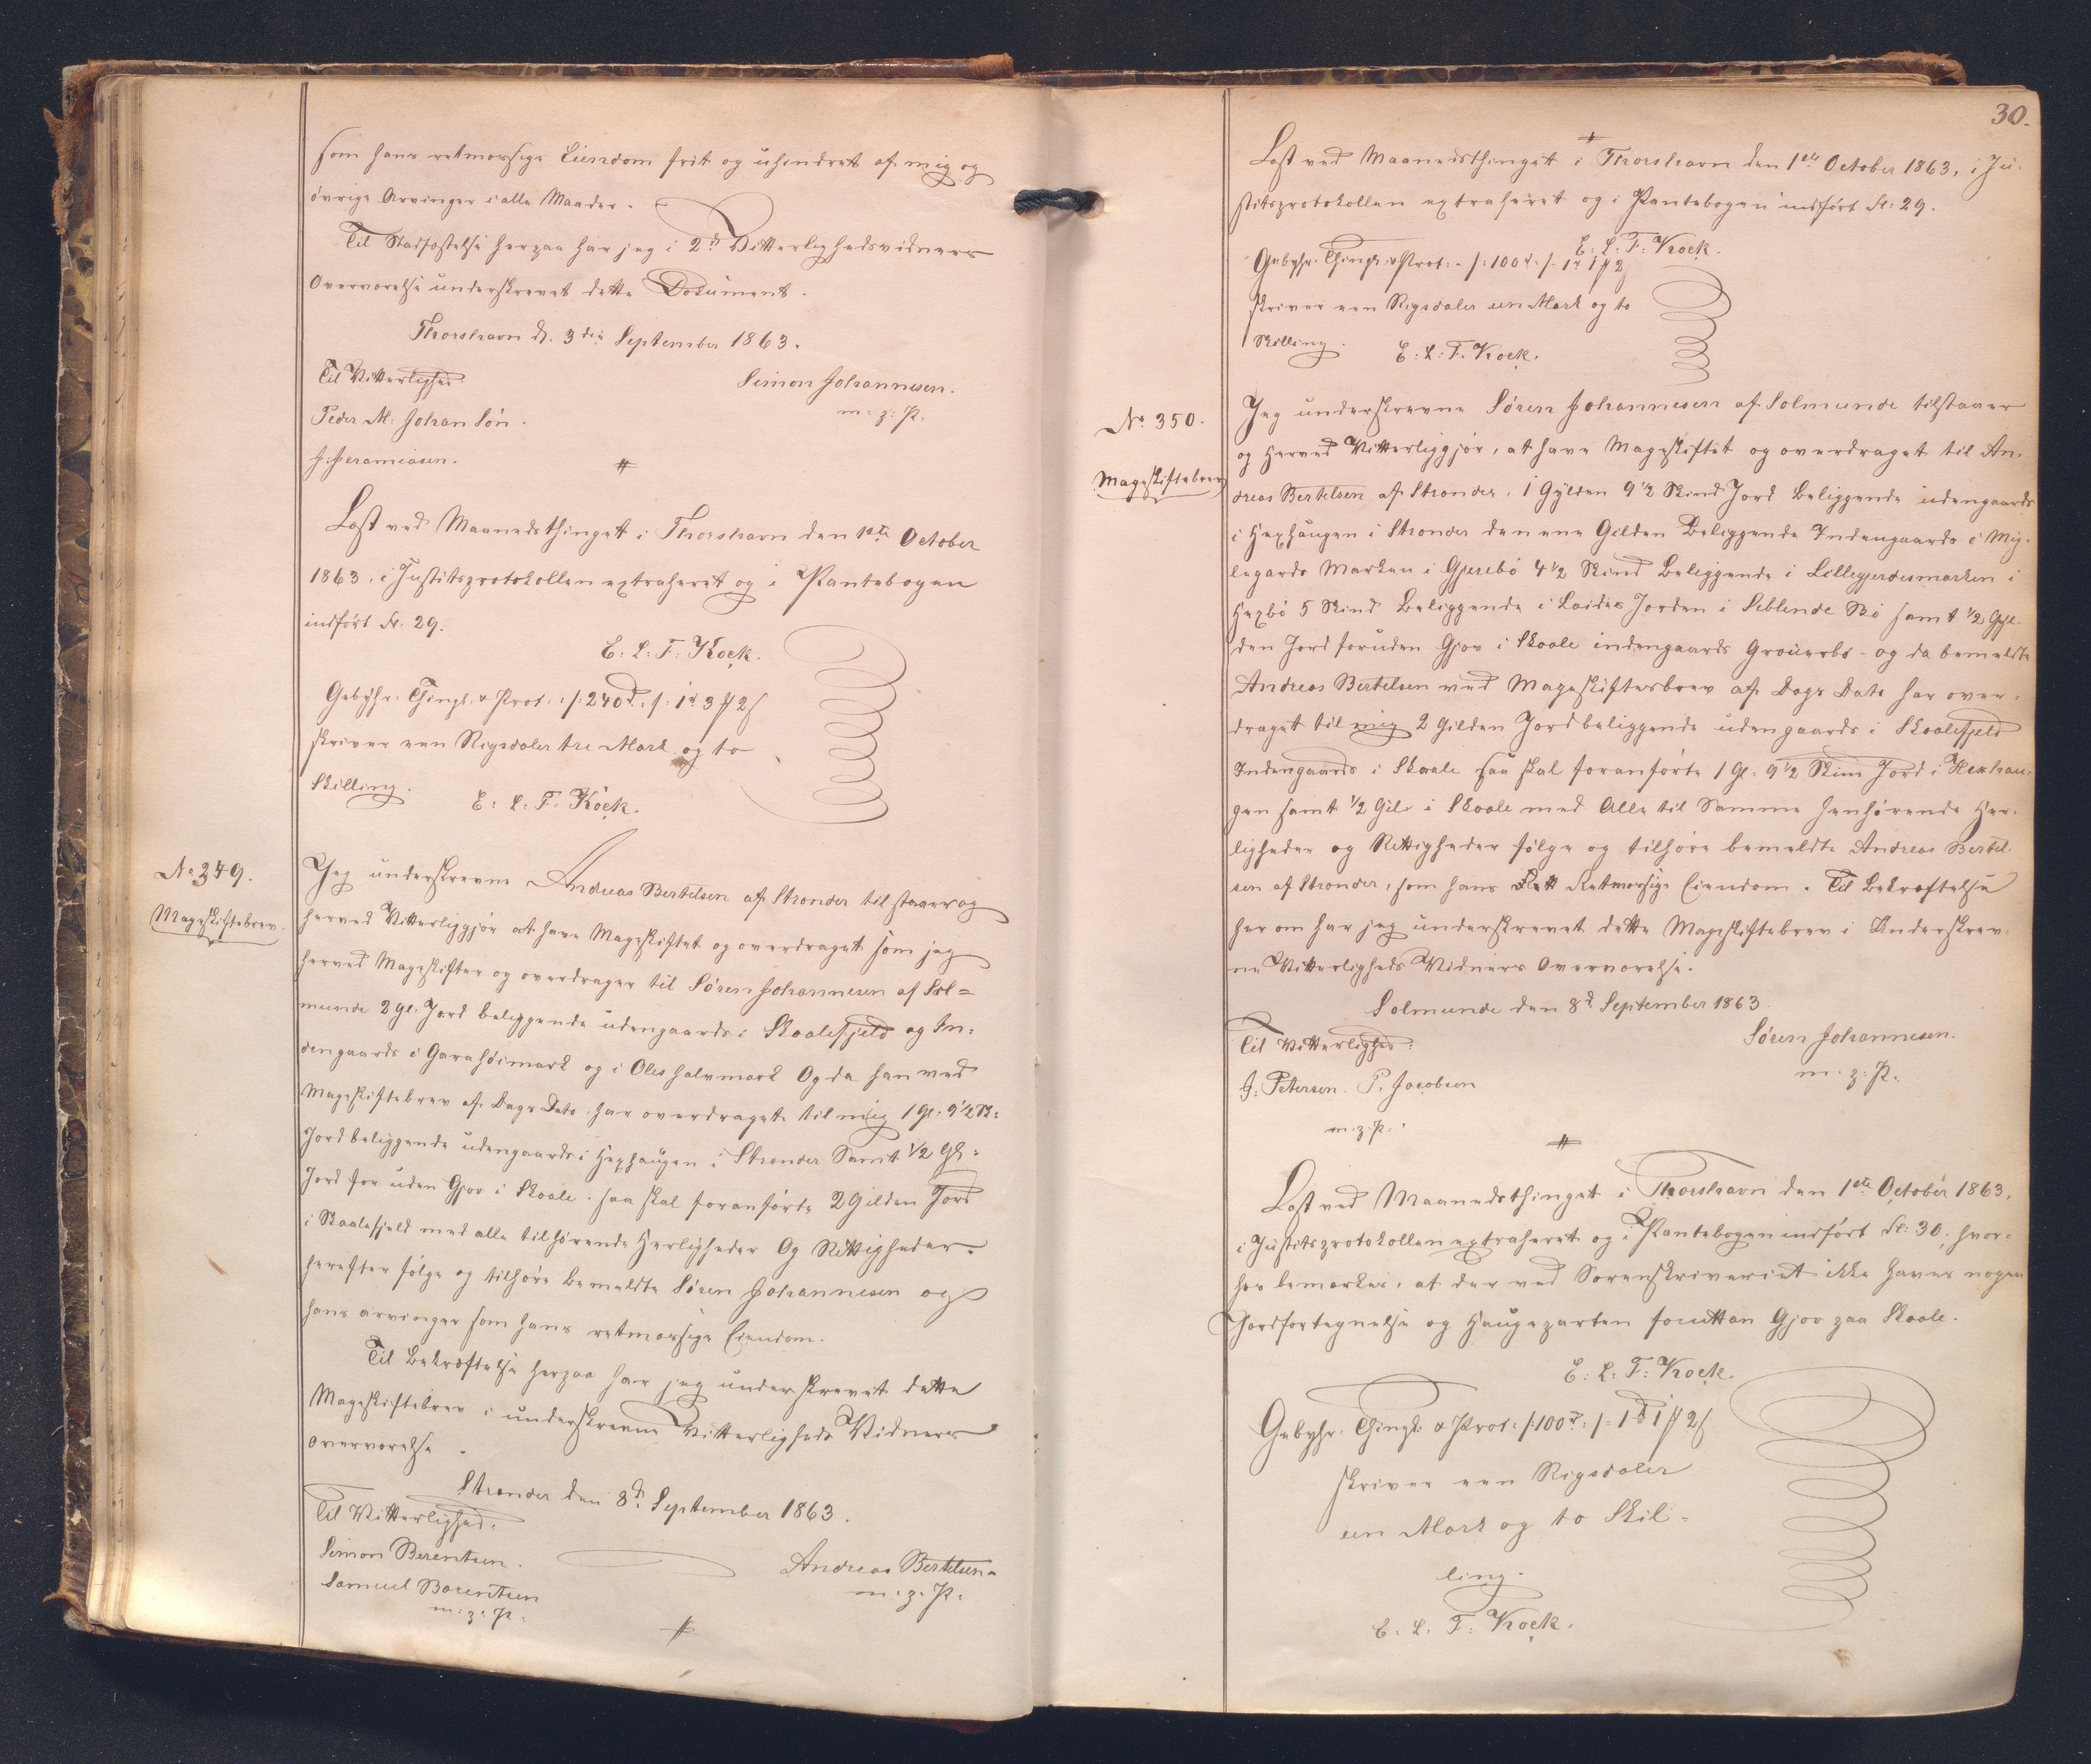 som hans retmæssige Eiendom frit og uhindret af mig og
øvrige Arvinger i alle Maader.
Til Stadfæstelse herpaa har jeg i 2de Vitterlighedsvidners
Overværelse underskrevet dette Document.
Thorshavn d. 3die September 1863.
Til Vitterlighed
Simon Johannesen.
m: p: P:
Peder M: Johan Søn.
J: Jeramiasen.
Læst ved Maanedsthinget i Thorshavn den 1ste October
1863, i Justitsprotokollen extraheret og i Pantebogen
indført Fl. 29.
E: L: F: Kock.
Gebyhr. Thingl. & Prot: /: 240d :/: 1rd 3 ß 2 s
skriver een Rigsdaler tre Mark og to
Skilling.
E: L: F: Kock.
No 349.
Mageskiftebrev.
Jeg underskrevne Andreas Bertelsen af Strønder tilstaaer og
herved Vitterliggjør at have Mageskiftet og overdraget som jeg
herved Mageskifter og overdrager til Søren Johannesen af Sol=
munde 2 gl. Jord beliggende udengaards i Skaalefjeld og In:
dengaards i Garahøimark og i Oles halvmark Og da han ved
Mageskiftebrev af Dags Dato har overdraget til mig 1 Gl: 9 1/2 Sk:
Jord beliggende udengaards i Hexhaugen i Strønder Samt 1/2 Gl:
Jord for uden Gjov i Skaale. saa skal foranførte 2 Gilden Jord
i Skaalefjeld med alle tilhørende Herligheder Og Rettigheder.
herefter følge og tilhøre bemeldte Søren Johannesen og
hans arvinger som hans retmæssige Eiendom.
Til Bekræftelse herpaa har jeg underskrevet dette
Mageskiftebrev i underskrevne Vitterligheds Vidners
overværelse.
Strønder den 8d September 1863.
Til Vitterlighed.
Simon Berentsen.
Andreas Bertelsen.
Samuel Barentsen
m. p. P.
m: p: P:
30.
Læst ved Maanedsthinget i Thorshavn den 1ste October 1863, i Ju-
stitsprotokollen extraheret og i Pantebogen indført Fl: 29.
E: L: F: Kock.
Gebyhr. Thingl. & Prot: /: 100d :/ 1rd 1 ß 2 s
skriver een Rigsdaler een Mark og to
Skilling.
E: L: F. Kock.
No 350.
Mageskiftebrev
Jeg underskrevne Søren Johannesen af Solmunde tilstaaer
og Herved Vitterliggjør, at have Mageskiftet og overdraget til An-
dreas Bertelsen af Strønder, 1 Gylden 9 1/2 Skind Jord Beliggende udengaards
i Hexhaugen i Strønder den ene Gilden Beliggende Indengaards i My-
legards Marken i Gjerebø 4 1/2 Skind Beliggende i Lillegjerdesmarken i
Hexbø 5 Skind Beliggende i Laides Jorden i Seblende Bø samt 1/2 Gyl-
den Jord foruden Gjov i Skaale indengaards Grouerbø - og da bemeldte
Andreas Bertelsen ved Mageskiftesbrev af Dags Dato har over-
draget til mig 2 Gilden Jord beliggende udengaards i Skaalefjeld
Indengaards i Skaale saa skal foranførte 1 Gl: 9 1/2 Skin Jord i Hexhau-
gen samt 1/2 Gil i Skaale med Alle til Samme henhørende Her-
ligheder og Rettigheder følge og tilhøre bemeldte Andreas Bertel-
sen af Strønder, som hans Rett Retmæssige Eiendom. Til Bekræftelse
her om har jeg underskrevet dette Mageskiftebrev i Underskrev-
ne Vitterligheds Vidners Overværelse.
Solmunde den 8d September 1863
Til Vitterlighed:
Søren Johannesen.
J: Petersen. P. Jacobsen
m. p. P.
m. p. P.
Læst ved Maanedsthinget i Thorshavn den 1ste October 1863,
i Justitsprotokollen extraheret og i Pantebogen indført Fl: 30, hvor-
hos bemærkes, at der ved Sorenskriveriet ikke haves nogen
Jordfortegnelse og Haugeparten foruttan Gjov paa Skaale.
E: L: F: Kock.
Gebyhr. Thingl. & Prot: /: 100d :/: 1rd 1 ß 2 s
skriver een Rigsdaler
een Mark og to Skil-
ling.
E. L. F: Kock.